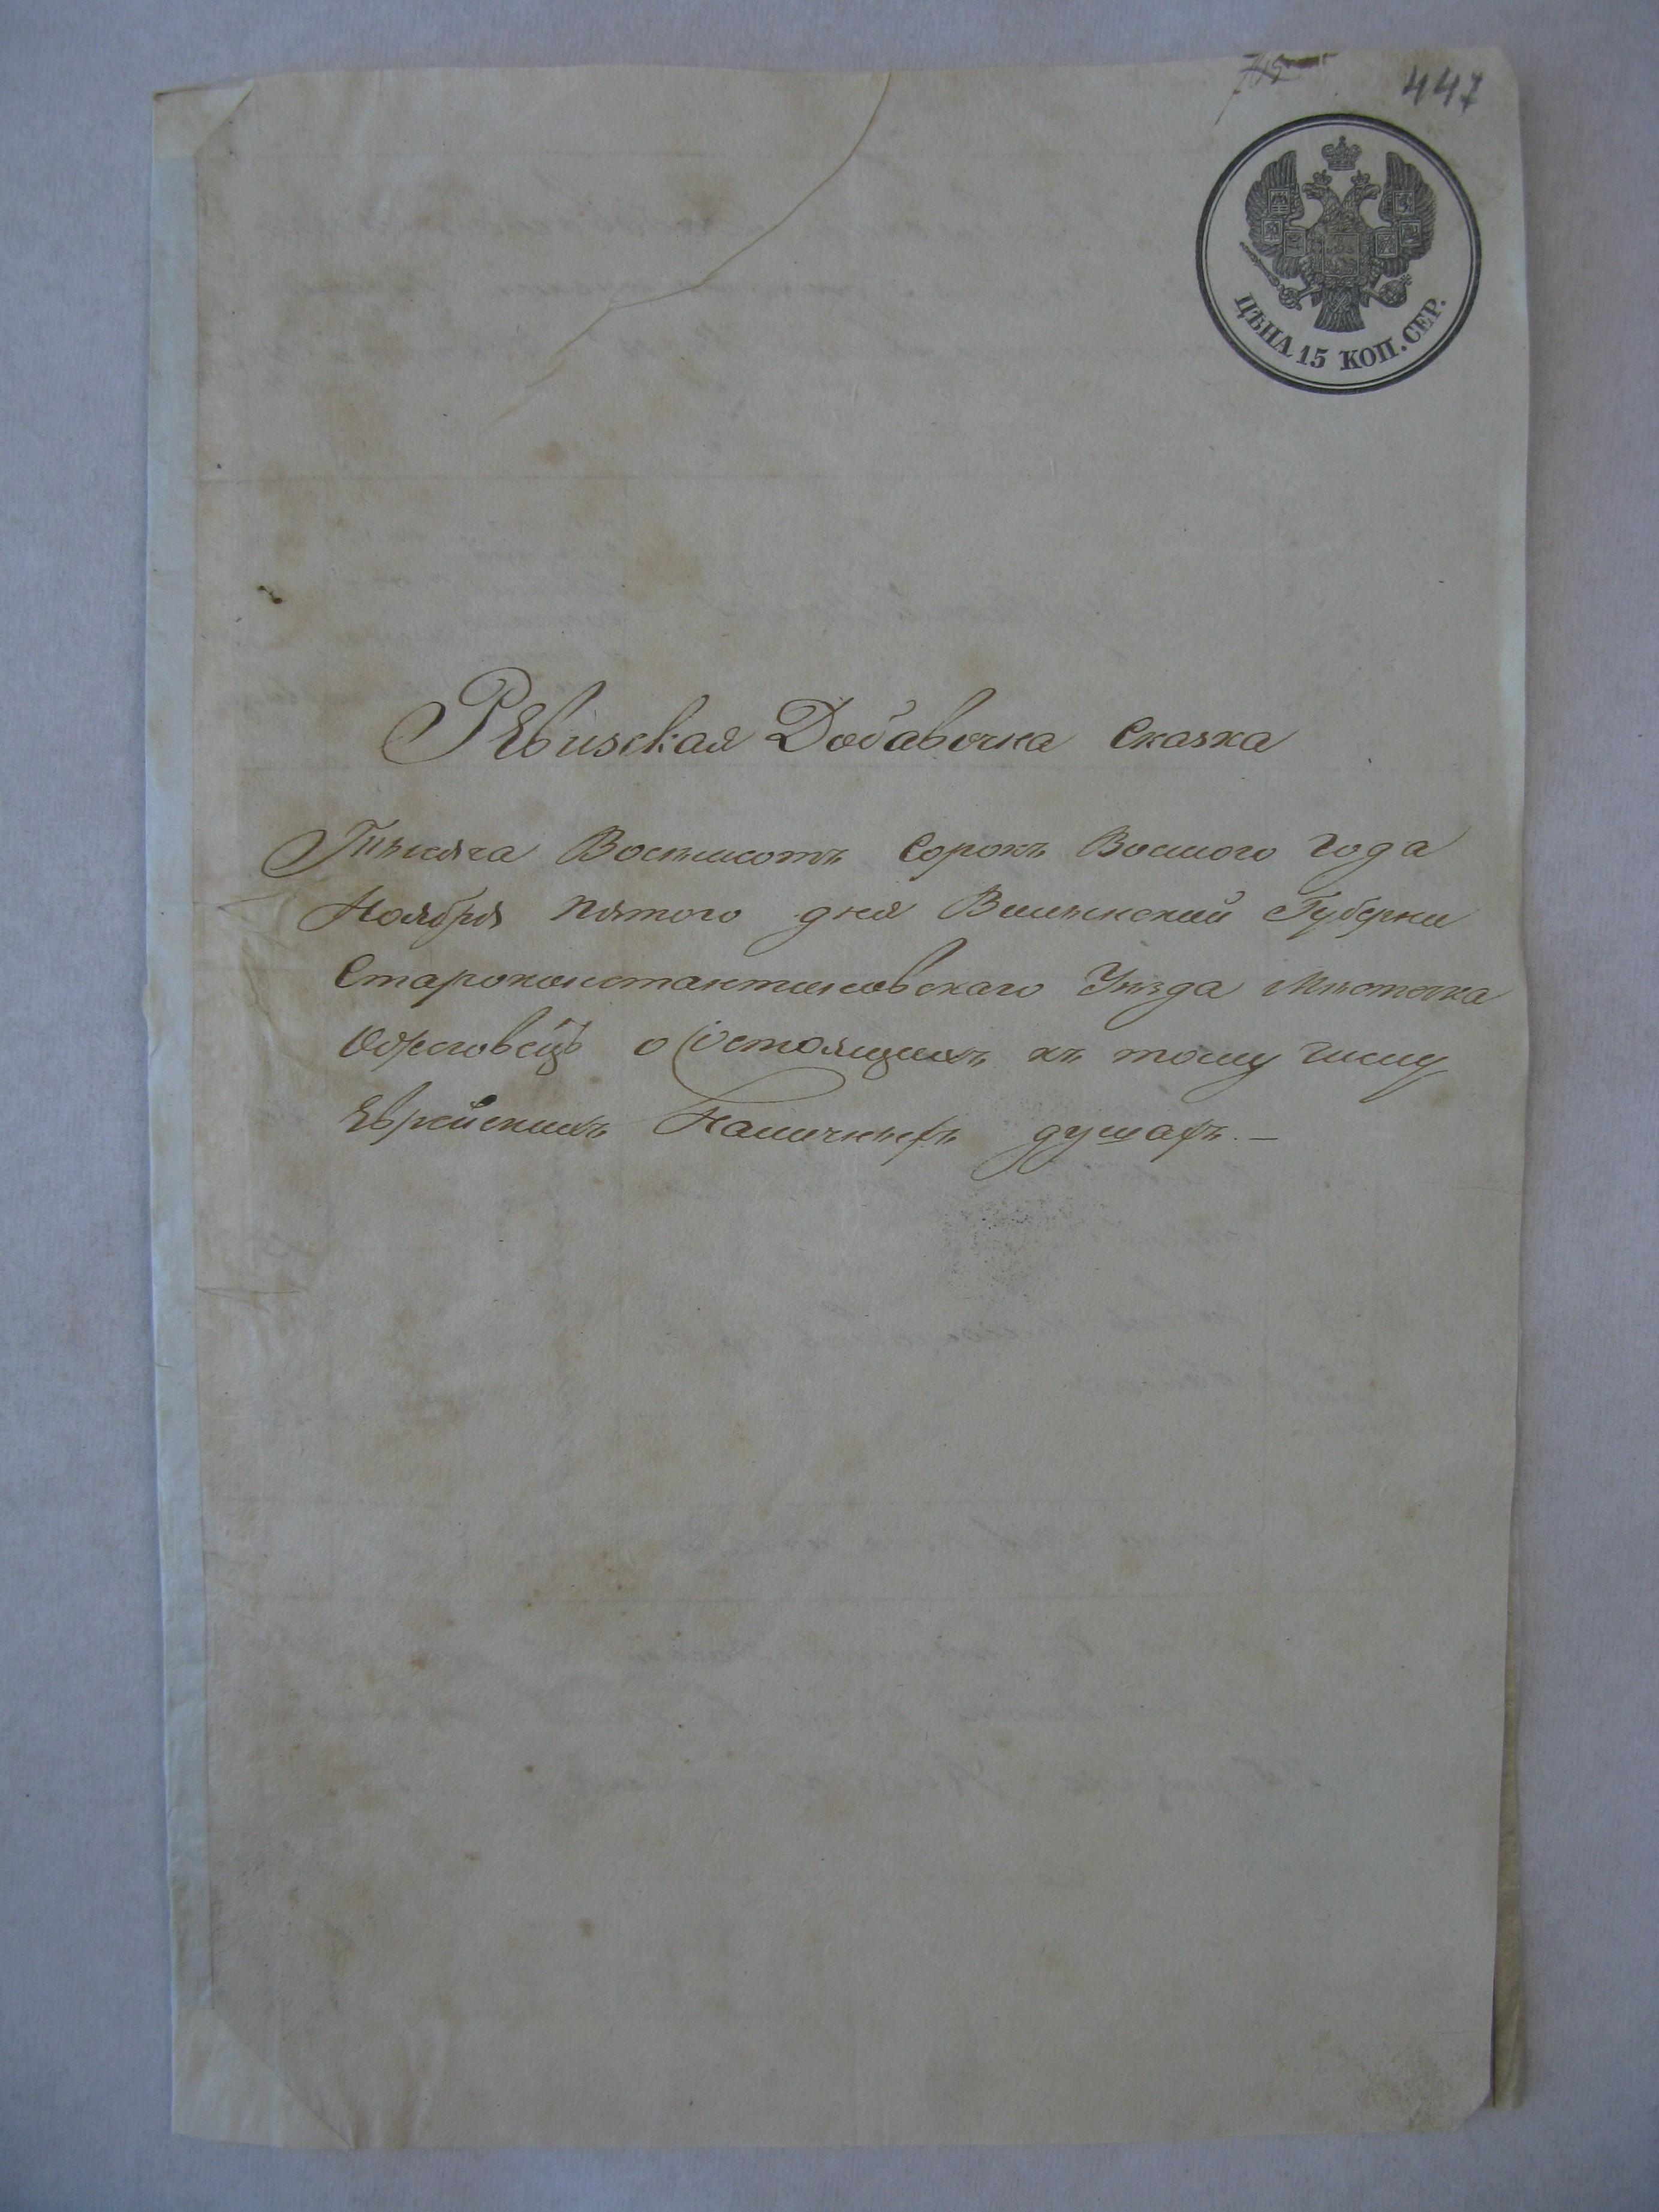 447
ЦѢНА 15 КОП. СЕР.
Ревизская Добавочна Сказка
Тысяча Восемсотъ Сорокъ Восмого Года
Ноября пятого дня Волынский Губерни
Староконстантиновскаго Уѣзда Мѣстечка
о Состоящихъ къ тому числу
Еврейскихъ Наличныхъ душахъ. —